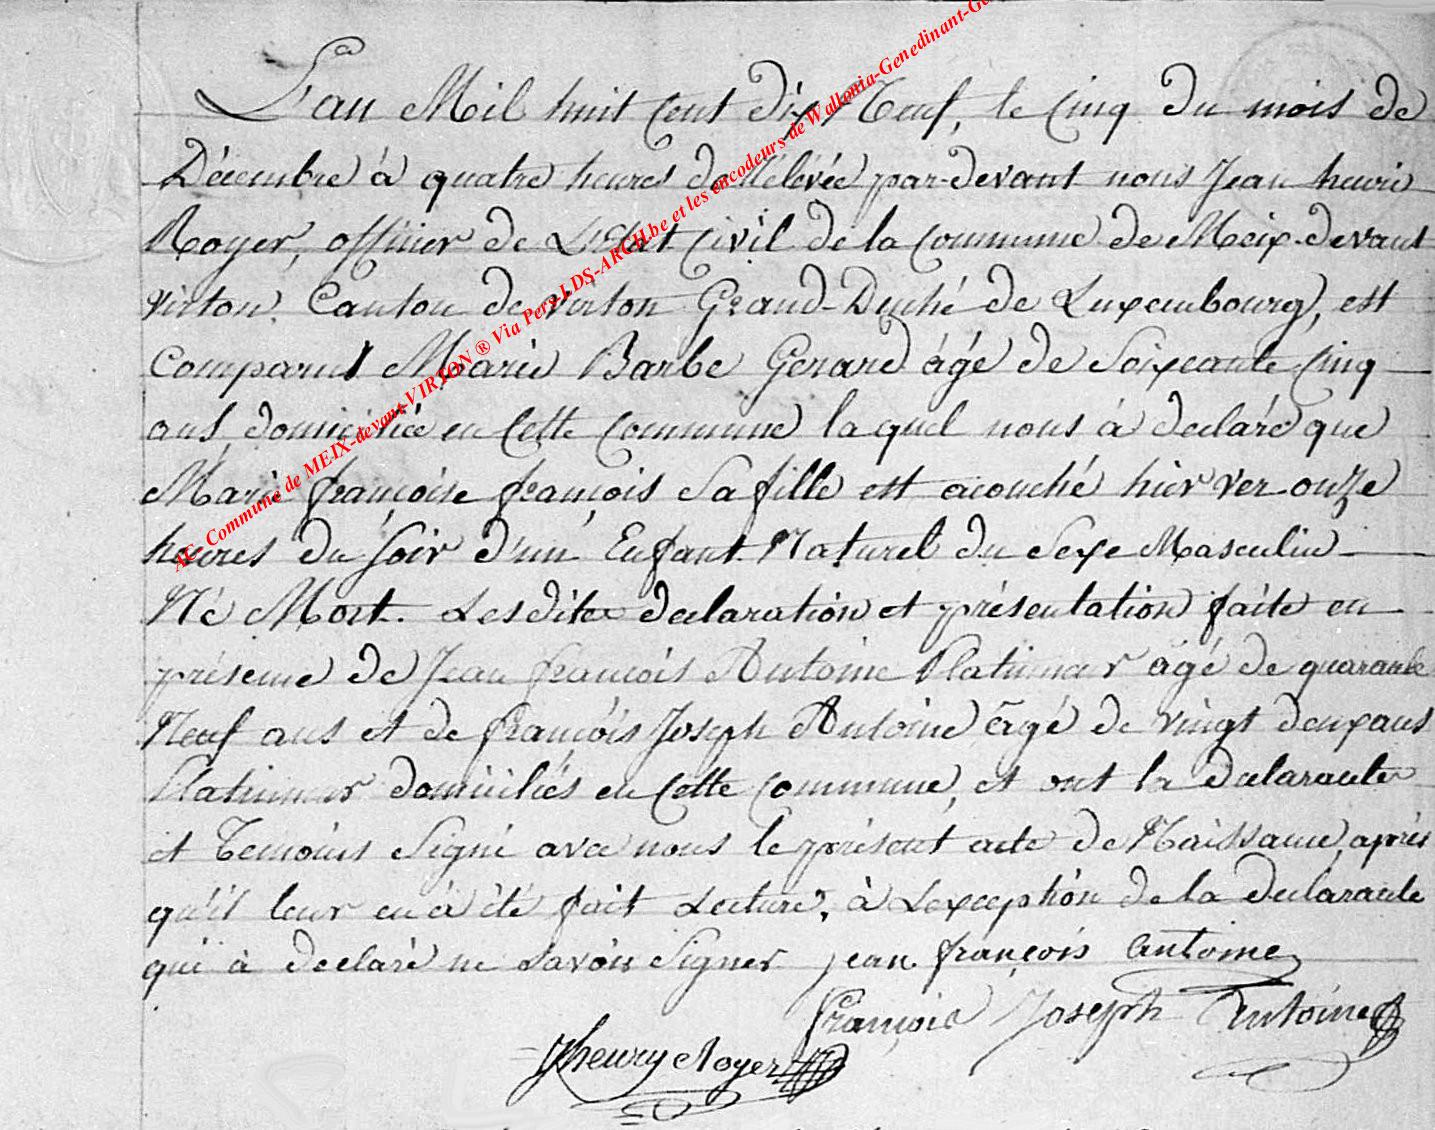 L'an Mil huit Cent dix Neuf, le Cinq du mois de
Décembre à quatre heures de rélévée par-devant nous Jean henri
Royer, officier de L'Etat Civil de la Commune de Meix-devant
virton. Canton de virton Grand-Duché de Luxembourg, est
Comparus Marie Barbe Gerard âgé de Soixeante Cinq
ans domiciliée en Cette Commune la quel nous à declaré que
Marie françoise françois Sa fille est acouché hier ver onze
heures du Soir d'un Enfant Naturel du Sexe Masculin
Né Mort. Lesdites declaration et présentation faite en
présence de Jean françois Antoine Platineur âgé de quarante
Neuf ans et de françois Joseph Antoine âgé de vingt deux ans
Platineur domiciliés en Cette Commune, et ont la déclarante
et Temoins Signé avec nous le présent acte de Naissance, après
qu'il leur en à été fait Lecture, à Lexception de la declarante
qui à declaré ne Savoir Signer jean françois antoine
françois Joseph Antoine
Jhenry Royer
AC. Commune de MEIX-devant-VIRTON ® Via Pers LDS-ARCH.be et les encodeurs de Wallonia-Genedinant-Ge